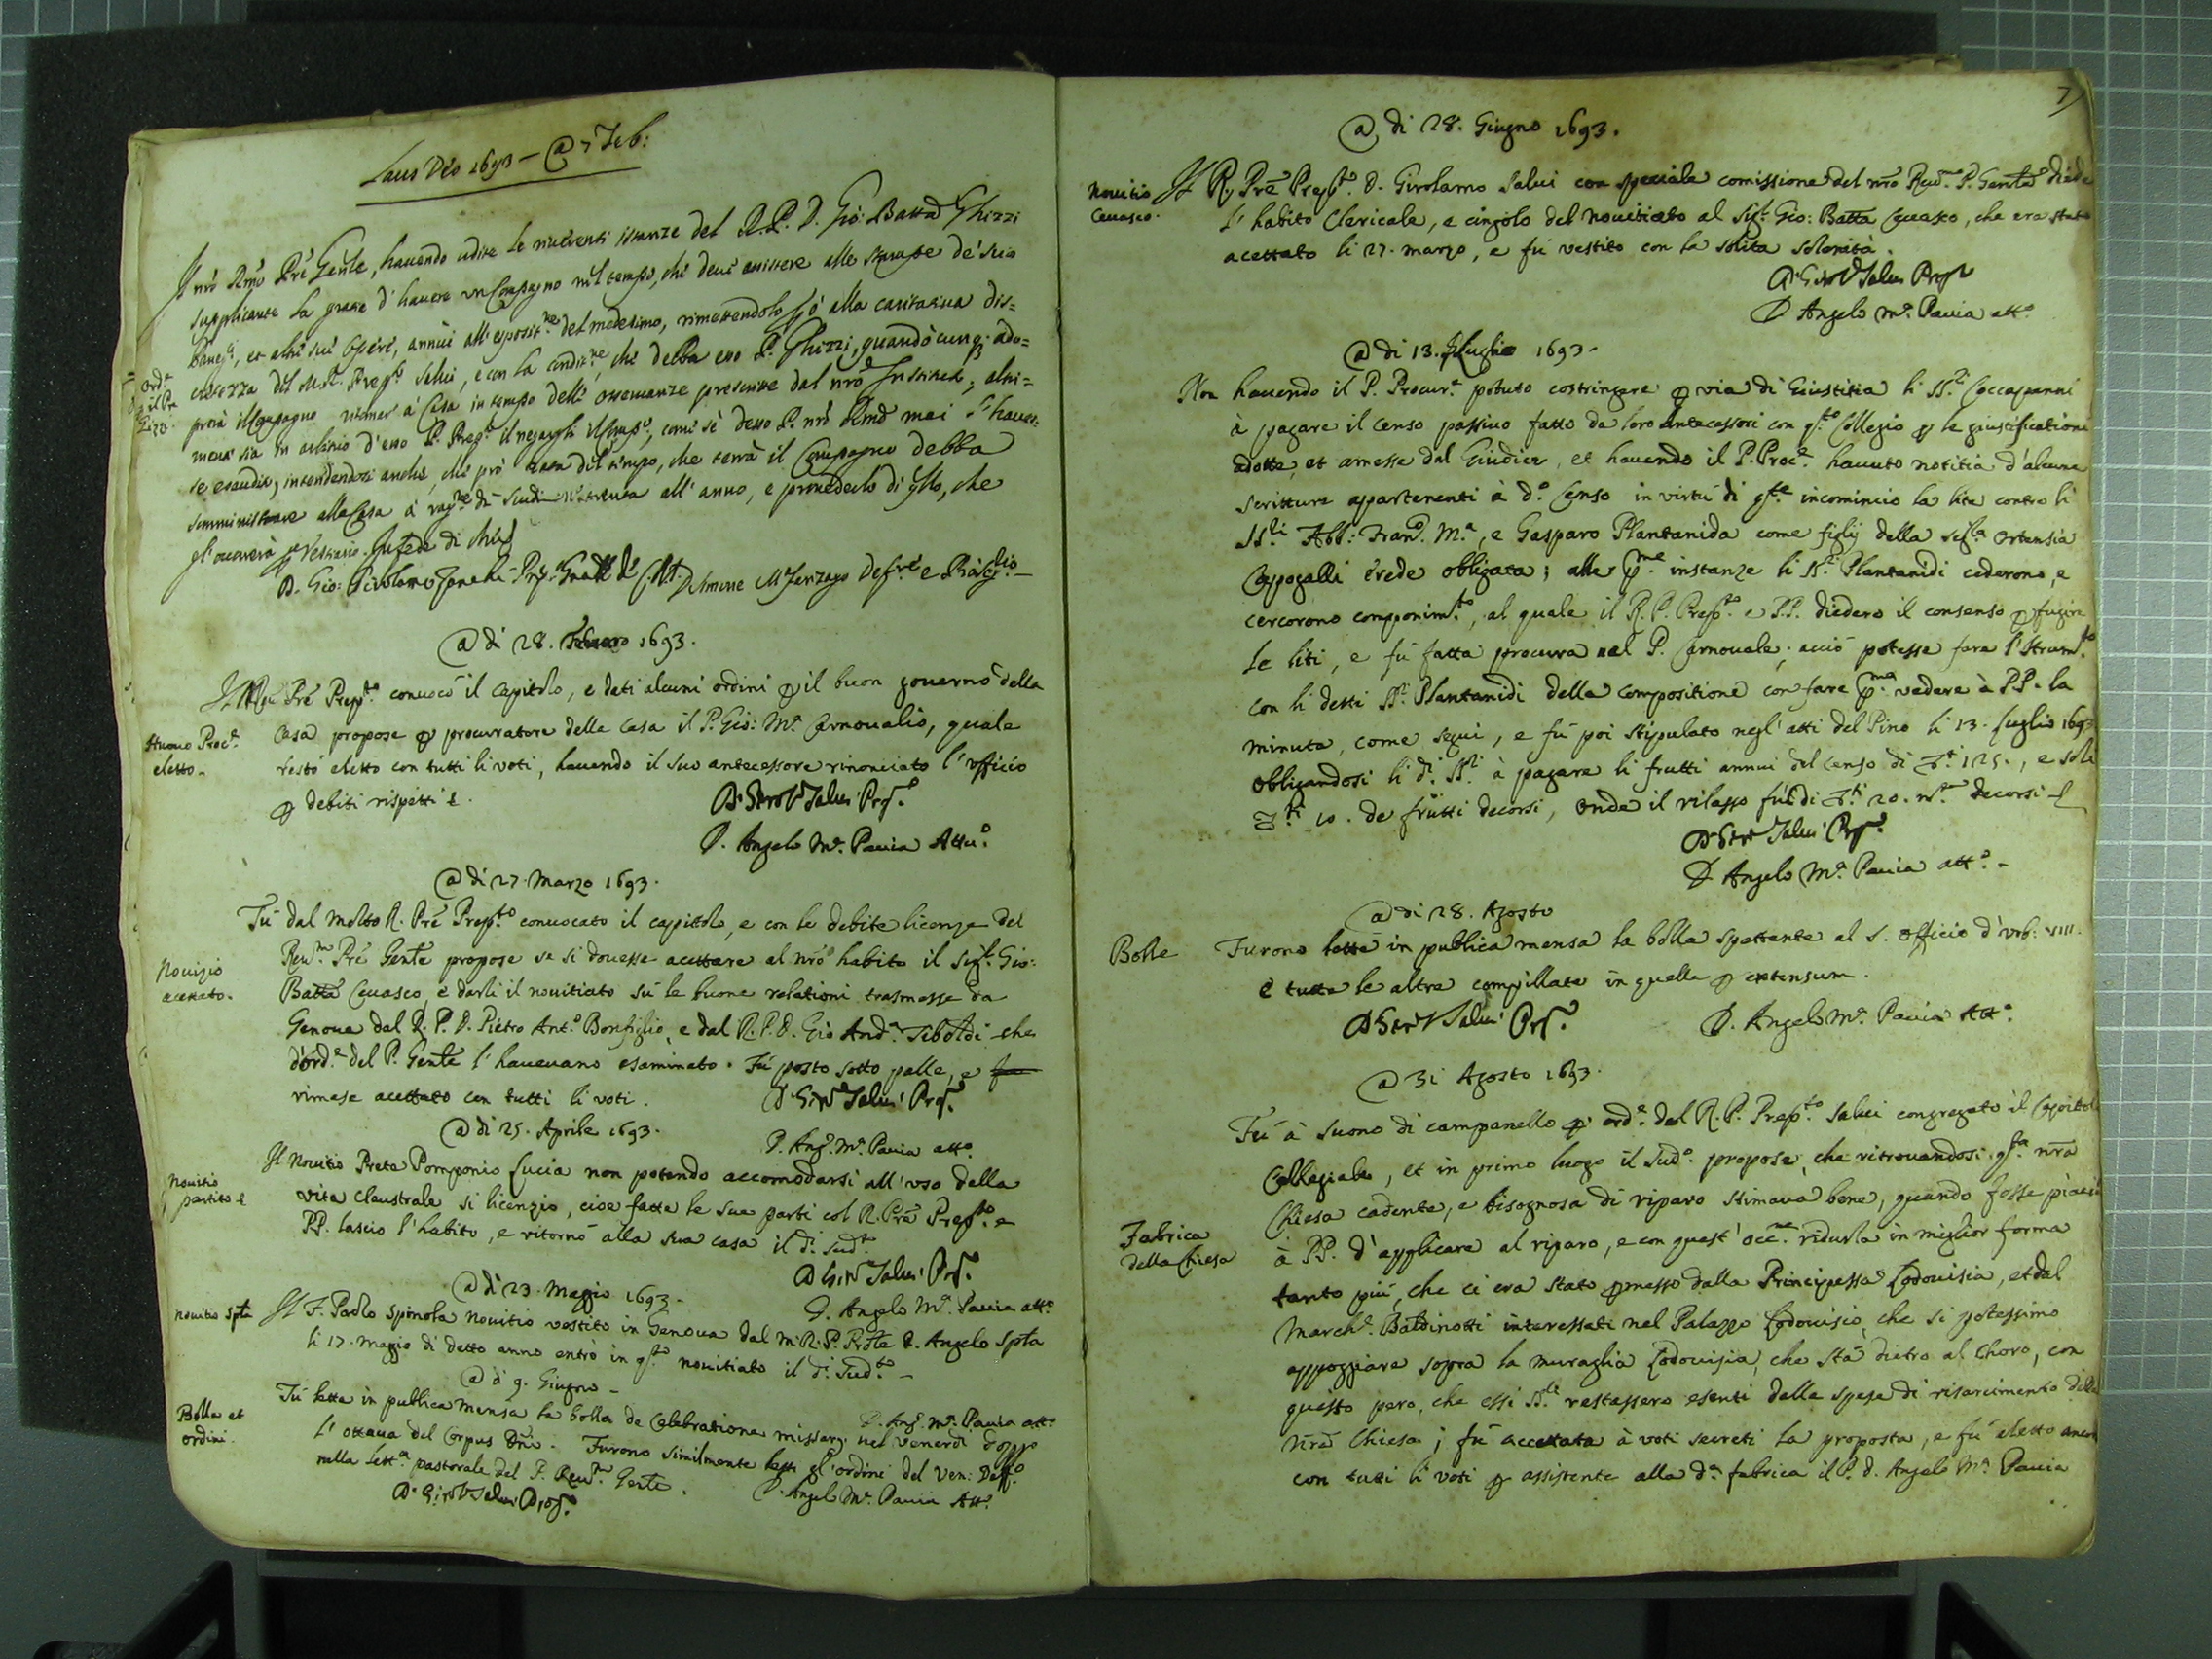 Laus Deo 1693 – @ 7 Feb:
Il nro Rmo Pre Gente, havendo udite le riuerenti istanze del R. P. D. Gio: Batta Ghizzi
supplicante la grazia d'hauere un Compagno nel tempo, che deue assistere alle stampe de' suoi
et altri sui opere, annui all'espositne del medesimo, rimettendolo però alla caritatiua dis=
cretezza del M. R. Prepto Salui, e con la conditne, che debba esso P. Ghizzi, quandocunq; ado=
prerà il Compagno ritornar à Casa in tempo delle osseruanze prescritte dal nro Instituto, altri=
menti sia in arbitrio d'esso P. Prepto il negargli
se esaudito, intendendosi anche, che pro rata del tempo, che terrà il Compagno debba
somministrare alla Casa à ragne di scudi all'anno, e prouederlo di qllo, che
gl'occorerà p Vestiario. In fede di che
D. Gio: Girolamo Zanchi
@ di 28. Febraro 1693.
Il R. Pre Prepto conuocò il capitolo, e dati alcuni ordini p il buon gouerno della
Nuouo Procre
eletto.
Casa propose p procuratore della casa il P. Gio: Ma Carnoualis, quale
restò eletto con tutti li voti, hauendo il suo antecessore rinonciato l'vfficio
p debiti rispetti &
D. Girolo Salui Prepo
D. Angelo Ma Pauia Attuo
@ di 27. Marzo 1693.
Fù dal molto R. Pre Prepto conuocato il capitolo, e con le debite licenze del
Reumo Pre Gente propose se si douesse acettare al nro habito il Sigr Gio:
Nouizio
acettato.
Batta Ceuasco, e darli il nouitiato sù le buone relationi trasmesse da
Genoua dal R. P. D. Pietro Anto Bonfiglio, e dal R. P. D. Gio Anda Teboldi che
d'orde del P. Gente l'haueuano esaminato. Fù posto sotto palle, e
rimase acettato con tutti li voti.
D. Girolo Salui Prepo
P. Ango Ma Pauia atto
@ di 25. Aprile 1693.
Nouitio
partito &
Il Nouitio Prete Pomponio Lucia non potendo accomodarsi all'vso della
vita claustrale si licenziò, cioe fatte le sue parti col R. Pre Prepto e
PP. lasciò l'habito, e ritornò alla sua casa il dì sudto
D. Girolo Salui Prepo
D. Angelo Ma Pauia atto
@ di 23. Maggio 1693.
Nouitio Spla
Il F. Paolo Spinola Nouitio vestito in Genoua dal M. R. P. Prote D. Angelo Spla
li 17. maggio di detto anno entrò in qsto nouitiato il dì sudto
D. Ango Ma Pauia atto
@ di 9. Giugno
Bolla et
ordini.
Fù letta in publica mensa la bolla de Celebratione missarj nel venerdi doppo
l'ottaua del Corpus Dni. Furono similmente letti gl'ordini del Ven: Deffo
nella letta pastorale del P. Reumo Gente.
D. Girolo Salui Prepo
D. Angelo Ma Pauia Atto
7
@ di 28. Giugno 1693.
Nouitio
Ceuasco.
Il R. Pre Prepto D. Girolamo Salui con speciale comissione del nro Reumo P. Gente diede
l'habito Clericale, e cingolo del nouitiato al Sigr Gio: Batta Ceuasco, che era stato
acettato li 27. marzo, e fù vestito con la solita solenità.
D. Girolo Salui Prepo
D. Angelo Ma Pauia atto
@ di 13. Luglio 1693.
Non hauendo il P. Procure potuto costringere p via di Giustitia li SSri Coccapanni
à pagare il censo passiuo fatto da loro antecessori con qsto Collegio p le giustificationi
adotte, et amesse dal Giudice, et hauendo il P. Procre hauuto notitia d'alcune
scritture appartenenti à do Censo in virtù di qste incominciò la lite contro li
SSri Abb: Franco Ma, e Gasparo Plantanida come figlij della Sigra Ortensia
Capogalli erede obligata; alle pme instanze li SSri Plantanidi cederono, e
cercorono componimto, al quale il R. P. Prepto e PP. diedero il consenso p fugire
le liti, e fù fatta procura nel P. Carnouale, acciò potesse fare l'Strumto
con li detti SSri Plantanidi della compositione con fare pma vedere à PP. la
minuta, come seguì, e fù poi stipulato negl'atti del Pino li 13. luglio 1693
obligandosi li di SSri à pagare li frutti annui del censo di 125., e soli
10. de frutti decorsi, onde il rilasso fù di 20. decorsi &
D. Girolo Salui Prepo
D. Angelo Ma Pauia atto
@ di 28. Agosto
Bolle
Furono lette in publica mensa la bolla spettante al S. Officio d'Urb: VIII.
e tutte le altre compillate in quella p extensum.
D. Girolo Salui Prepo
D. Angelo Ma Pauia Atto
@ 31 Agosto 1693.
Fù à suono di campanello p orde del R. P. Prepto Salui congregato il Capitolo
Collegiale, et in primo luogo il sudo propose, che ritrouandosi qsta nra
Chiesa cadente, e bisognosa di riparo stimaua bene, quando fosse piaciuto
Fabrica
della Chiesa
à PP. d'applicare al riparo, e con quest'occne ridurla in miglior forma
tanto più, che ci era stato pmesso dalla Principessa Lodouisia, et dal
Marche Baldinotti interessati nel Palazzo Lodouisio, che si potessimo
appoggiare sopra la muraglia Lodouisia, che stà dietro al Choro, con
questo pero, che essi SSri restassero esenti dalle spese di risarcimento della
nra Chiesa; fù accettata à voti secreti la proposta, e fù eletto ancora
con tutti li voti p assistente alla da fabrica il P. D. Angelo Ma Pauia